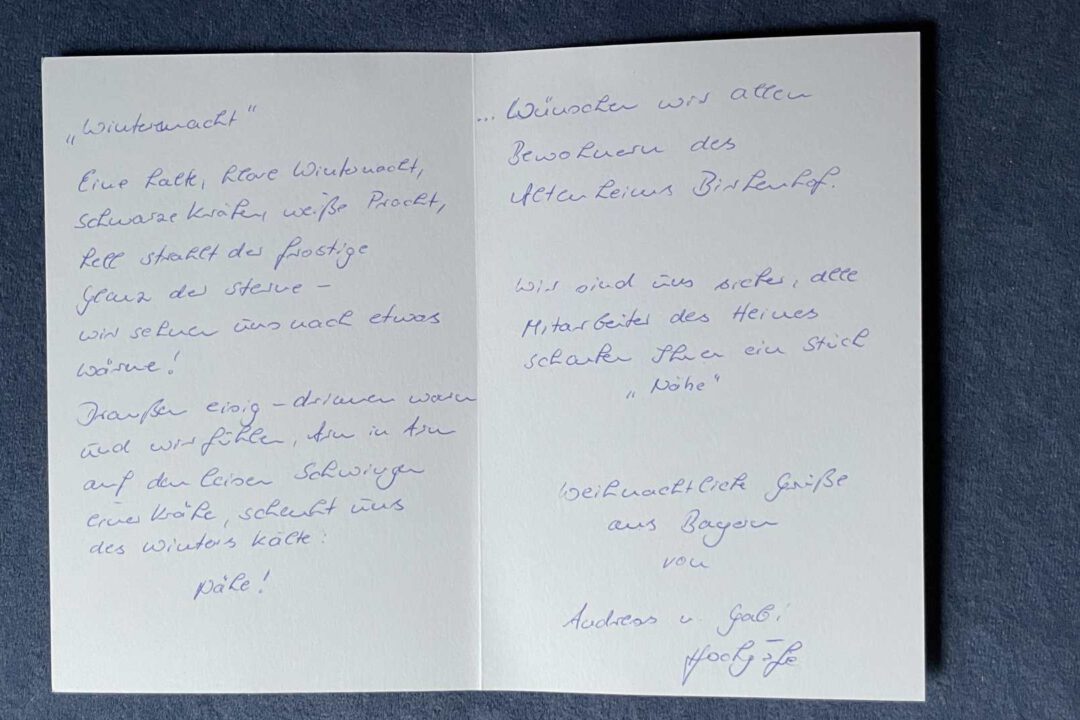 „Winternacht"
Eine kalte, klare Winternacht,
schwarze Krähen, weiße Pracht,
hell strahlt der frostige
Glanz der Sterne –
wir sehnen uns nach etwas
Wärme!
Draußen eisig – drinnen warm
und wir fühlen, Arm in Arm
auf den leisen Schwingen
einer Krähe, schenkt uns
des Winters Kälte:
Nähe!
... Wünschen wir allen
Bewohnern des
Altenheims Birkenhof.
Wir sind uns sicher, alle
Mitarbeiter des Heimes
schenken Ihnen ein Stück
„Nähe"
Weihnachtliche Grüße
aus Bayern
von
Andreas u. Gabi